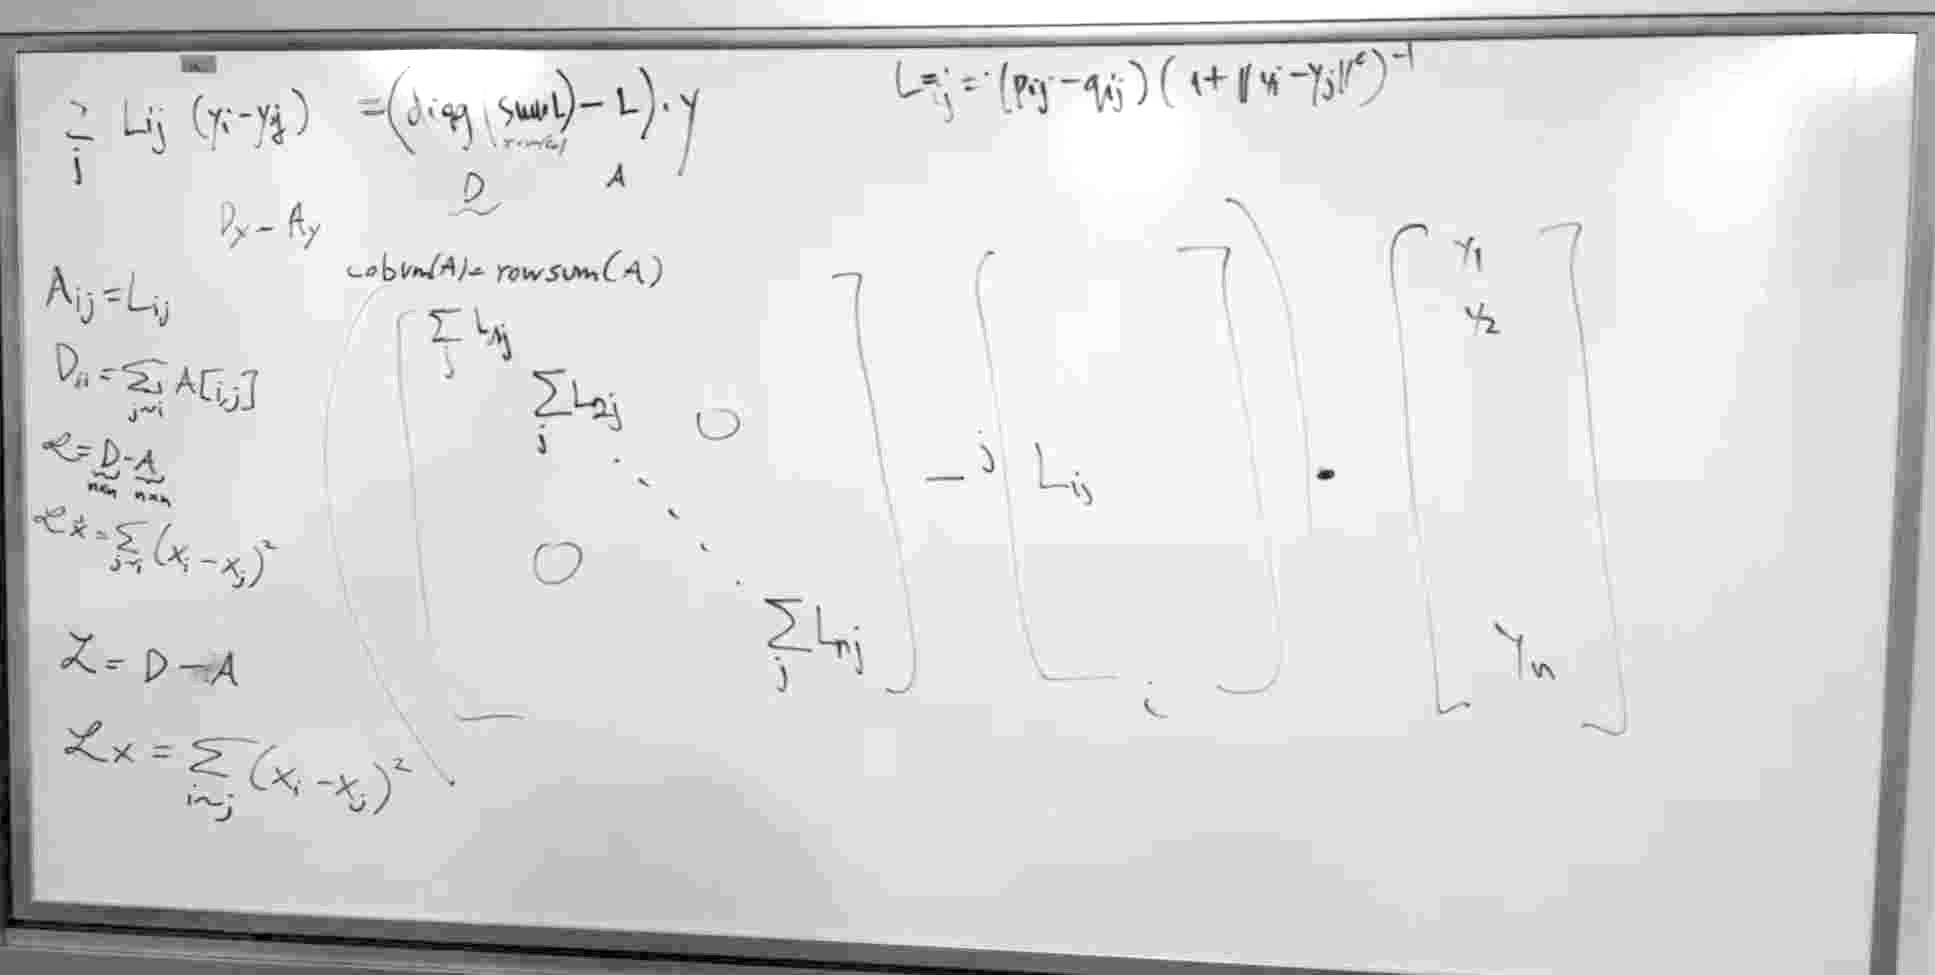 ∑_j L_ij (y_i - y_j) = (diag(sum L) - L) · y
L_ij = (p_ij - q_ij) (1 + ||y_i - y_j||²)^-1
D A
D_y - A_y
colsum(A) = rowsum(A)
A_ij = L_ij
D_ii = ∑_{j~i} A[i,j]
ℒ = D - A
n×n n×n
ℒx = ∑_{j~i} (x_i - x_j)²
ℒ = D - A
ℒx = ∑_{i~j} (x_i - x_j)²
∑_j L_1j
∑_j L_2j 0
0
∑_j L_nj
- j L_ij i
·
y_1
y_2
y_n